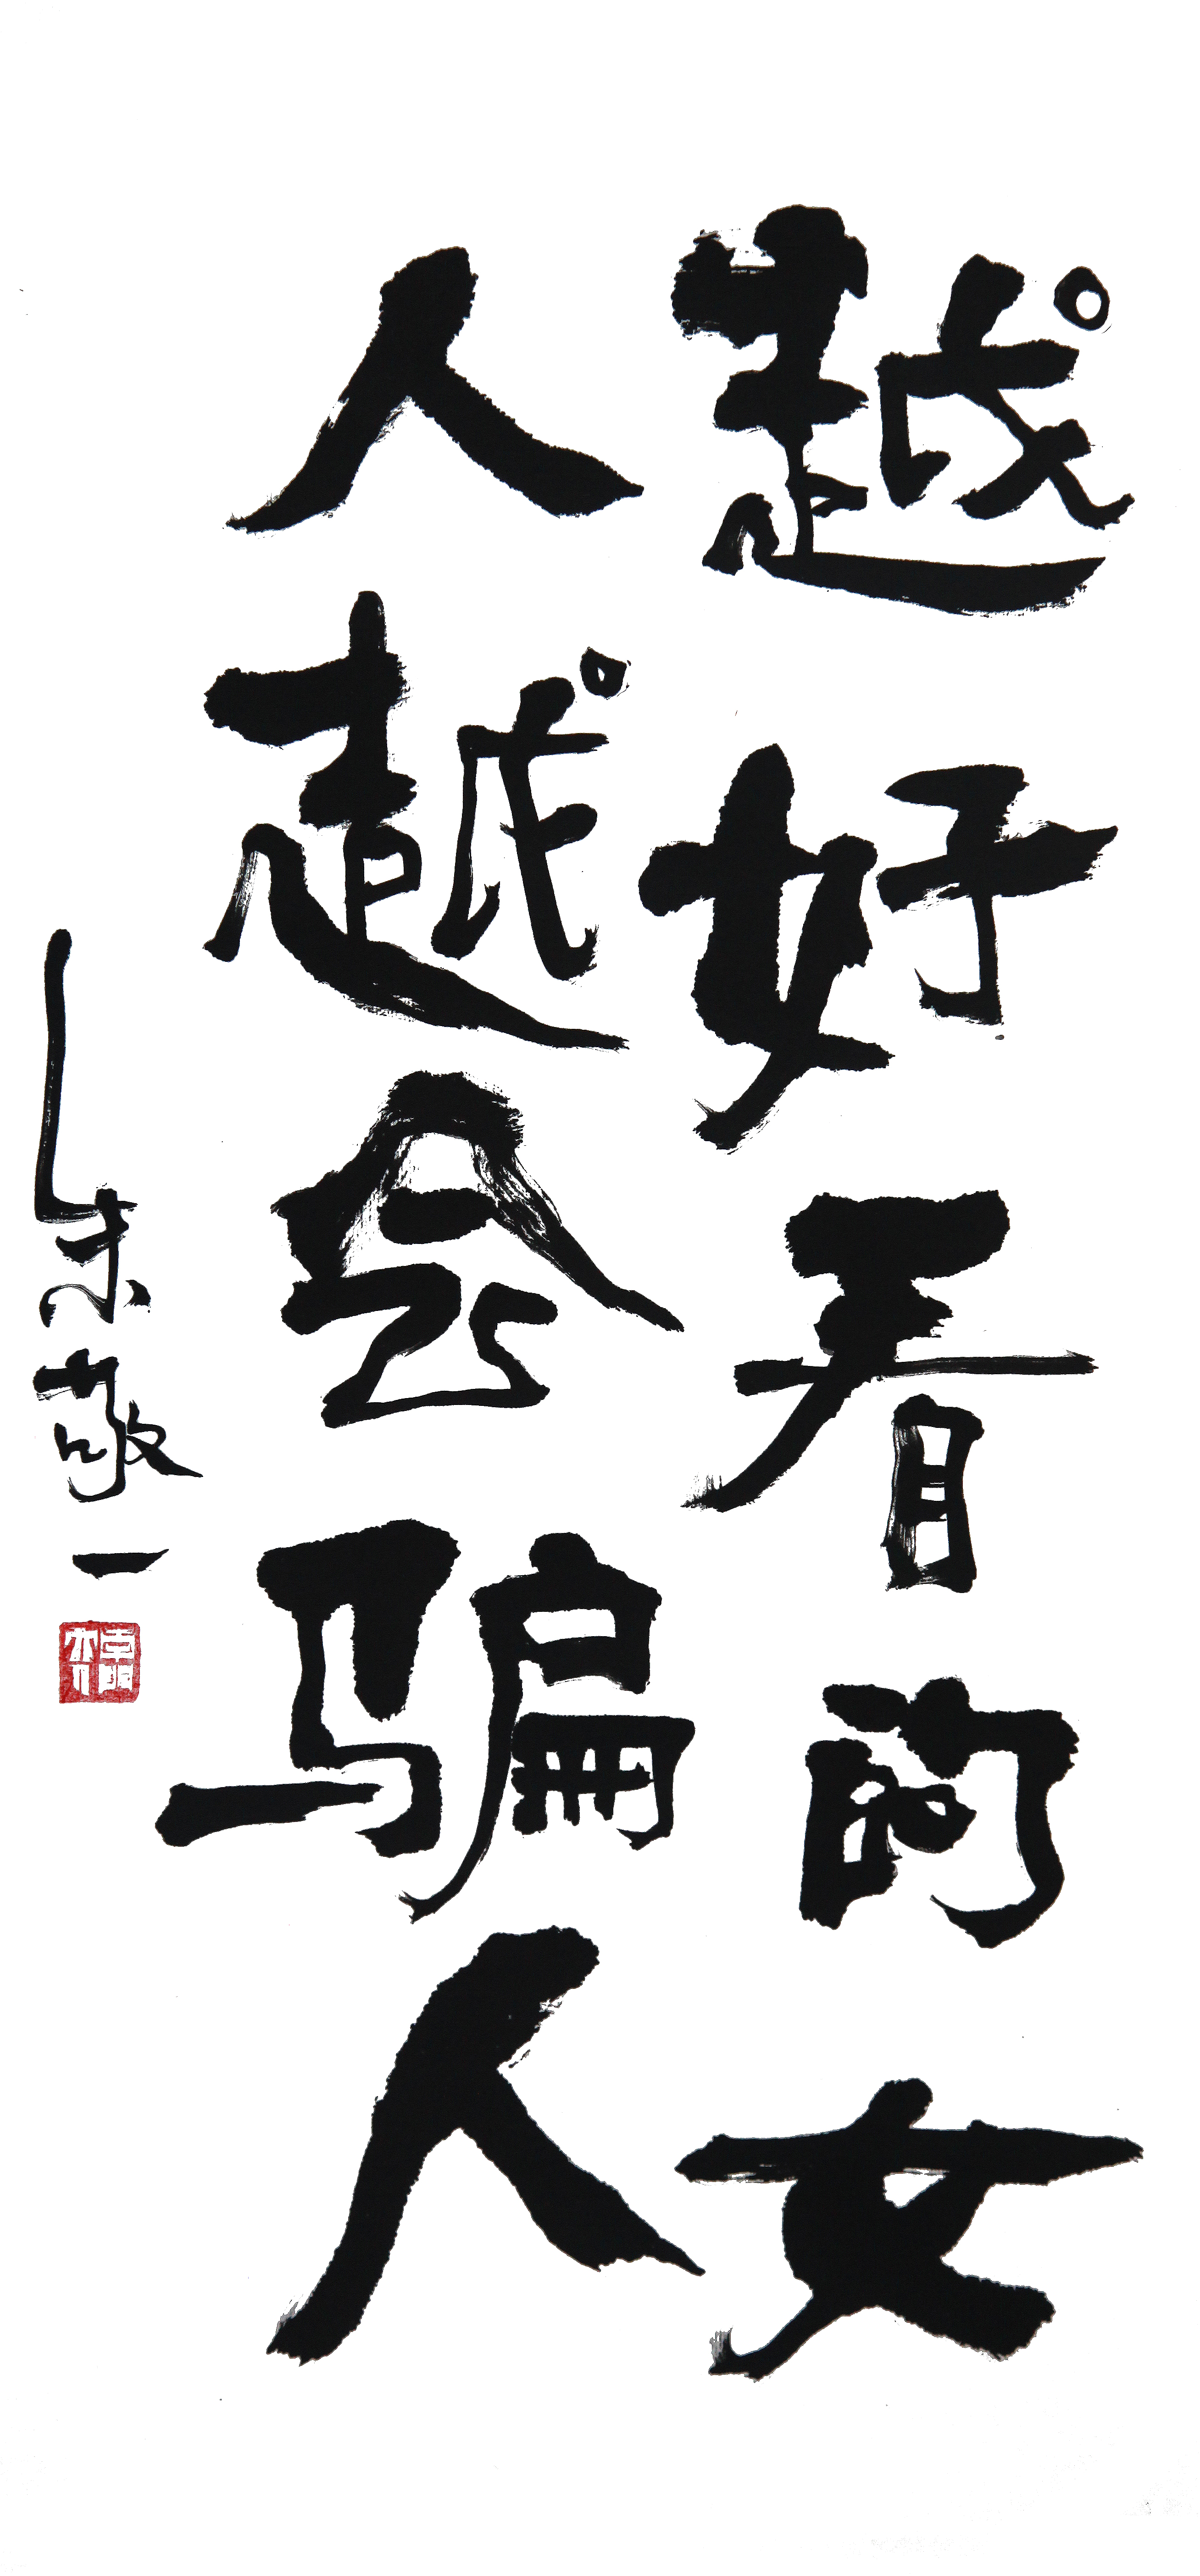 越好看的女
人越会骗人
朱敬一